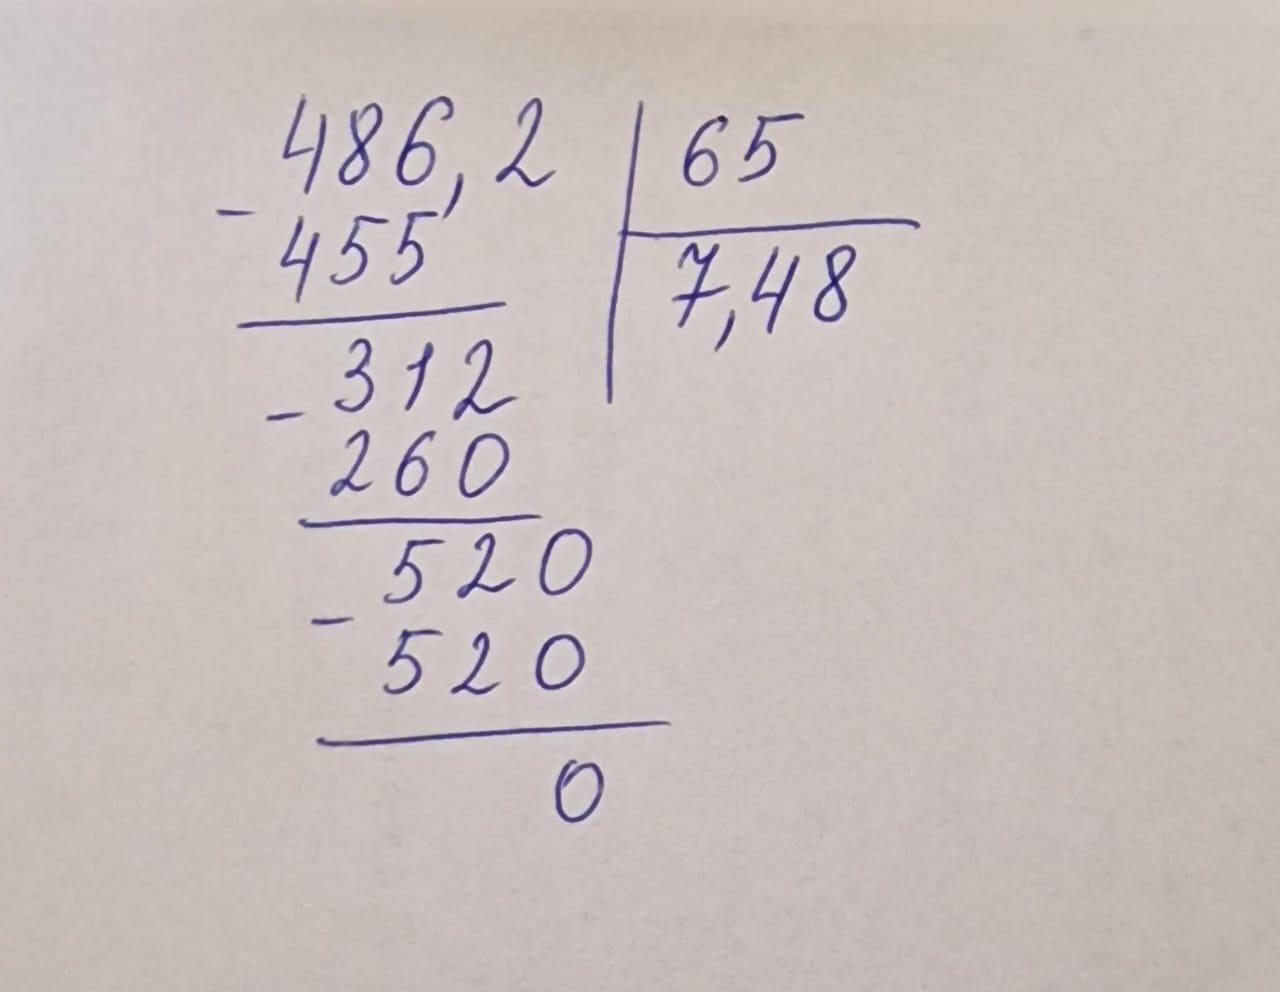 486,2 65
- 455 7,48
- 312
260
- 520
520
0